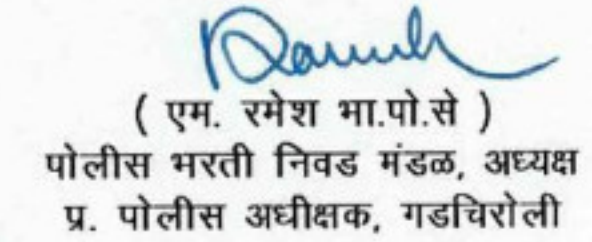 Ramesh
( एम. रमेश भा.पो.से )
पोलीस भरती निवड मंडळ, अध्यक्ष
प्र. पोलीस अधीक्षक, गडचिरोली